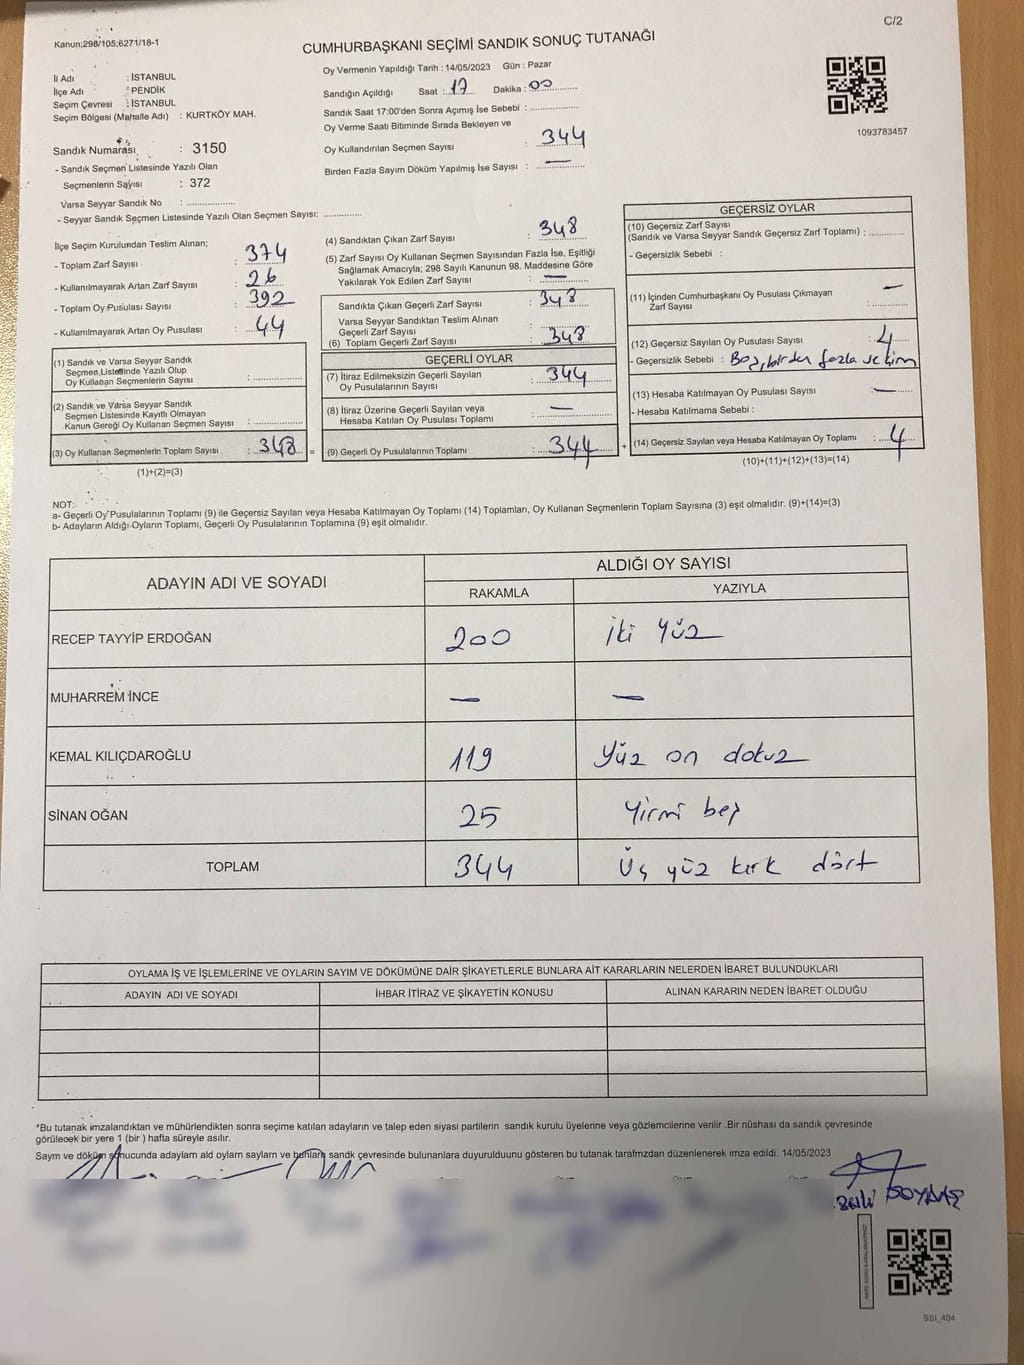 C/2
Kanun;298/105;6271/18-1
CUMHURBAŞKANI SEÇİMİ SANDIK SONUÇ TUTANAĞI
İl Adı : İSTANBUL
İlçe Adı : PENDİK
Seçim Çevresi : İSTANBUL
Seçim Bölgesi (Mahalle Adı) : KURTKÖY MAH.
Oy Vermenin Yapıldığı Tarih : 14/05/2023 Gün : Pazar
Sandığın Açıldığı Saat : 17 Dakika : 00
Sandık Saat 17:00'den Sonra Açımış İse Sebebi :
Oy Verme Saati Bitiminde Sırada Bekleyen ve
Oy Kullandırılan Seçmen Sayısı : 344
Birden Fazla Sayım Döküm Yapılmış İse Sayısı : —
1093783457
Sandık Numarası : 3150
- Sandık Seçmen Listesinde Yazılı Olan
Seçmenlerin Sayısı : 372
Varsa Seyyar Sandık No :
- Seyyar Sandık Seçmen Listesinde Yazılı Olan Seçmen Sayısı:
İlçe Seçim Kurulundan Teslim Alınan;
- Toplam Zarf Sayısı : 374
- Kullanılmayarak Artan Zarf Sayısı : 26
- Toplam Oy Pusulası Sayısı : 392
- Kullanılmayarak Artan Oy Pusulası : 44
(1) Sandık ve Varsa Seyyar Sandık
Seçmen Listesinde Yazılı Olup
Oy Kullanan Seçmenlerin Sayısı :
(2) Sandık ve Varsa Seyyar Sandık
Seçmen Listesinde Kayıtlı Olmayan
Kanun Gereği Oy Kullanan Seçmen Sayısı :
(3) Oy Kullanan Seçmenlerin Toplam Sayısı : 348 =
(1)+(2)=(3)
(4) Sandıktan Çıkan Zarf Sayısı : 348
(5) Zarf Sayısı Oy Kullanan Seçmen Sayısından Fazla İse, Eşitliği
Sağlamak Amacıyla; 298 Sayılı Kanunun 98. Maddesine Göre
Yakılarak Yok Edilen Zarf Sayısı : —
Sandıkta Çıkan Geçerli Zarf Sayısı : 348
Varsa Seyyar Sandıktan Teslim Alınan
Geçerli Zarf Sayısı
(6) Toplam Geçerli Zarf Sayısı : 348
GEÇERLİ OYLAR
(7) İtiraz Edilmeksizin Geçerli Sayılan
Oy Pusulalarının Sayısı : 344
(8) İtiraz Üzerine Geçerli Sayılan veya
Hesaba Katılan Oy Pusulası Toplamı : —
(9) Geçerli Oy Pusulalarının Toplamı : 344 +
GEÇERSİZ OYLAR
(10) Geçersiz Zarf Sayısı
(Sandık ve Varsa Seyyar Sandık Geçersiz Zarf Toplamı) :
- Geçersizlik Sebebi :
(11) İçinden Cumhurbaşkanı Oy Pusulası Çıkmayan
Zarf Sayısı : —
(12) Geçersiz Sayılan Oy Pusulası Sayısı : 4
- Geçersizlik Sebebi : Boş, birden fazla seçim
(13) Hesaba Katılmayan Oy Pusulası Sayısı : —
- Hesaba Katılmama Sebebi :
(14) Geçersiz Sayılan veya Hesaba Katılmayan Oy Toplamı : 4
(10)+(11)+(12)+(13)=(14)
NOT:
a- Geçerli Oy Pusulalarının Toplamı (9) ile Geçersiz Sayılan veya Hesaba Katılmayan Oy Toplamı (14) Toplamları, Oy Kullanan Seçmenlerin Toplam Sayısına (3) eşit olmalıdır. (9)+(14)=(3)
b- Adayların Aldığı Oyların Toplamı, Geçerli Oy Pusulalarının Toplamına (9) eşit olmalıdır.
ADAYIN ADI VE SOYADI ALDIĞI OY SAYISI
RAKAMLA YAZIYLA
RECEP TAYYİP ERDOĞAN 200 iki yüz
MUHARREM İNCE — —
KEMAL KILIÇDAROĞLU 119 Yüz on dokuz
SİNAN OĞAN 25 Yirmi beş
TOPLAM 344 Üç yüz kırk dört
OYLAMA İŞ VE İŞLEMLERİNE VE OYLARIN SAYIM VE DÖKÜMÜNE DAİR ŞİKAYETLERLE BUNLARA AİT KARARLARIN NELERDEN İBARET BULUNDUKLARI
ADAYIN ADI VE SOYADI İHBAR İTİRAZ VE ŞİKAYETİN KONUSU ALINAN KARARIN NEDEN İBARET OLDUĞU
*Bu tutanak imzalandıktan ve mühürlendikten sonra seçime katılan adayların ve talep eden siyasi partilerin sandık kurulu üyelerine veya gözlemcilerine verilir .Bir nüshası da sandık çevresinde
görülecek bir yere 1 (bir ) hafta süreyle asılır.
Sayım ve döküm sonucunda adayların ald oyların sayların ve bunların sandk çevresinde bulunanlara duyurulduunu gösteren bu tutanak tarafmzdan düzenlenerek imza edildi. 14/05/2023
SOYDAŞ
SSI_404